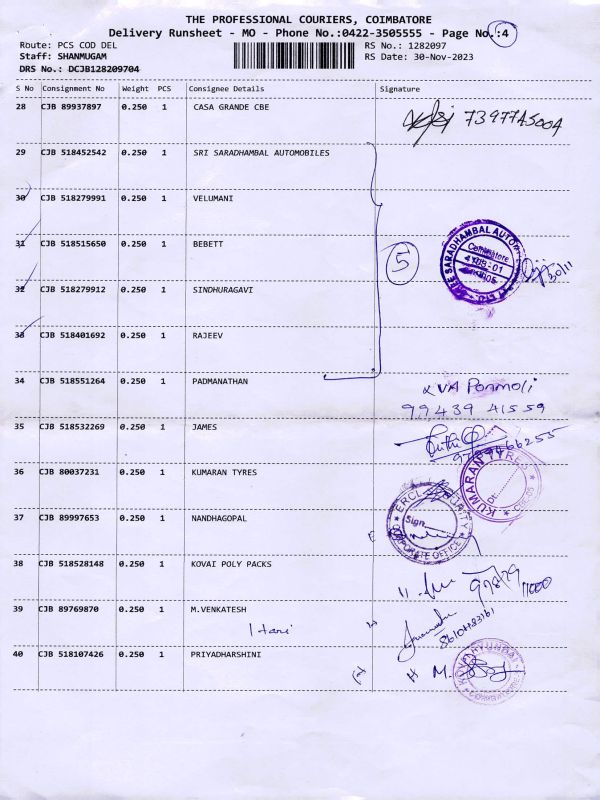 THE PROFESSIONAL COURIERS, COIMBATORE
Delivery Runsheet - MO - Phone No.:0422-3505555 - Page No.:4
Route: PCS COD DEL RS No.: 1282097
Staff: SHANMUGAM RS Date: 30-Nov-2023
DRS No.: DCJB128209704
S No Consignment No Weight PCS Consignee Details Signature
28 CJB 89937897 0.250 1 CASA GRANDE CBE
7397745004
29 CJB 518452542 0.250 1 SRI SARADHAMBAL AUTOMOBILES
30 CJB 518279991 0.250 1 VELUMANI
31 CJB 518515650 0.250 1 BEBETT
5
Coimbatore
30/11
32 CJB 518279912 0.250 1 SINDHURAGAVI
33 CJB 518401692 0.250 1 RAJEEV
34 CJB 518551264 0.250 1 PADMANATHAN
Ponmoli
99439 41559
35 CJB 518532269 0.250 1 JAMES
36 CJB 80037231 0.250 1 KUMARAN TYRES
KUMARAN TYRES
37 CJB 89997653 0.250 1 NANDHAGOPAL
Sign
CORPORATE OFFICE
38 CJB 518528148 0.250 1 KOVAI POLY PACKS
39 CJB 89769870 0.250 1 M.VENKATESH
Hari
40 CJB 518107426 0.250 1 PRIYADHARSHINI
M.